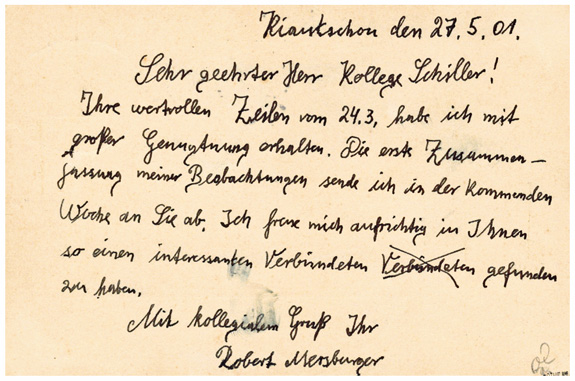 Kiautschou den 27.5.01.
Sehr geehrter Herr Kollege Schiller!
Ihre wertvollen Zeilen vom 24.3, habe ich mit
großer Genugtnung erhalten. Die erste Zusammen-
fassung meiner Beobachtungen sende ich in der kommenden
Woche an Sie ab. Ich freue mich aufrichtig in Ihnen
so einen interessanten Verbündeten Verbündeten gefunden
zu haben.
Mit kollegialem Gruß Ihr
Robert Mersburger